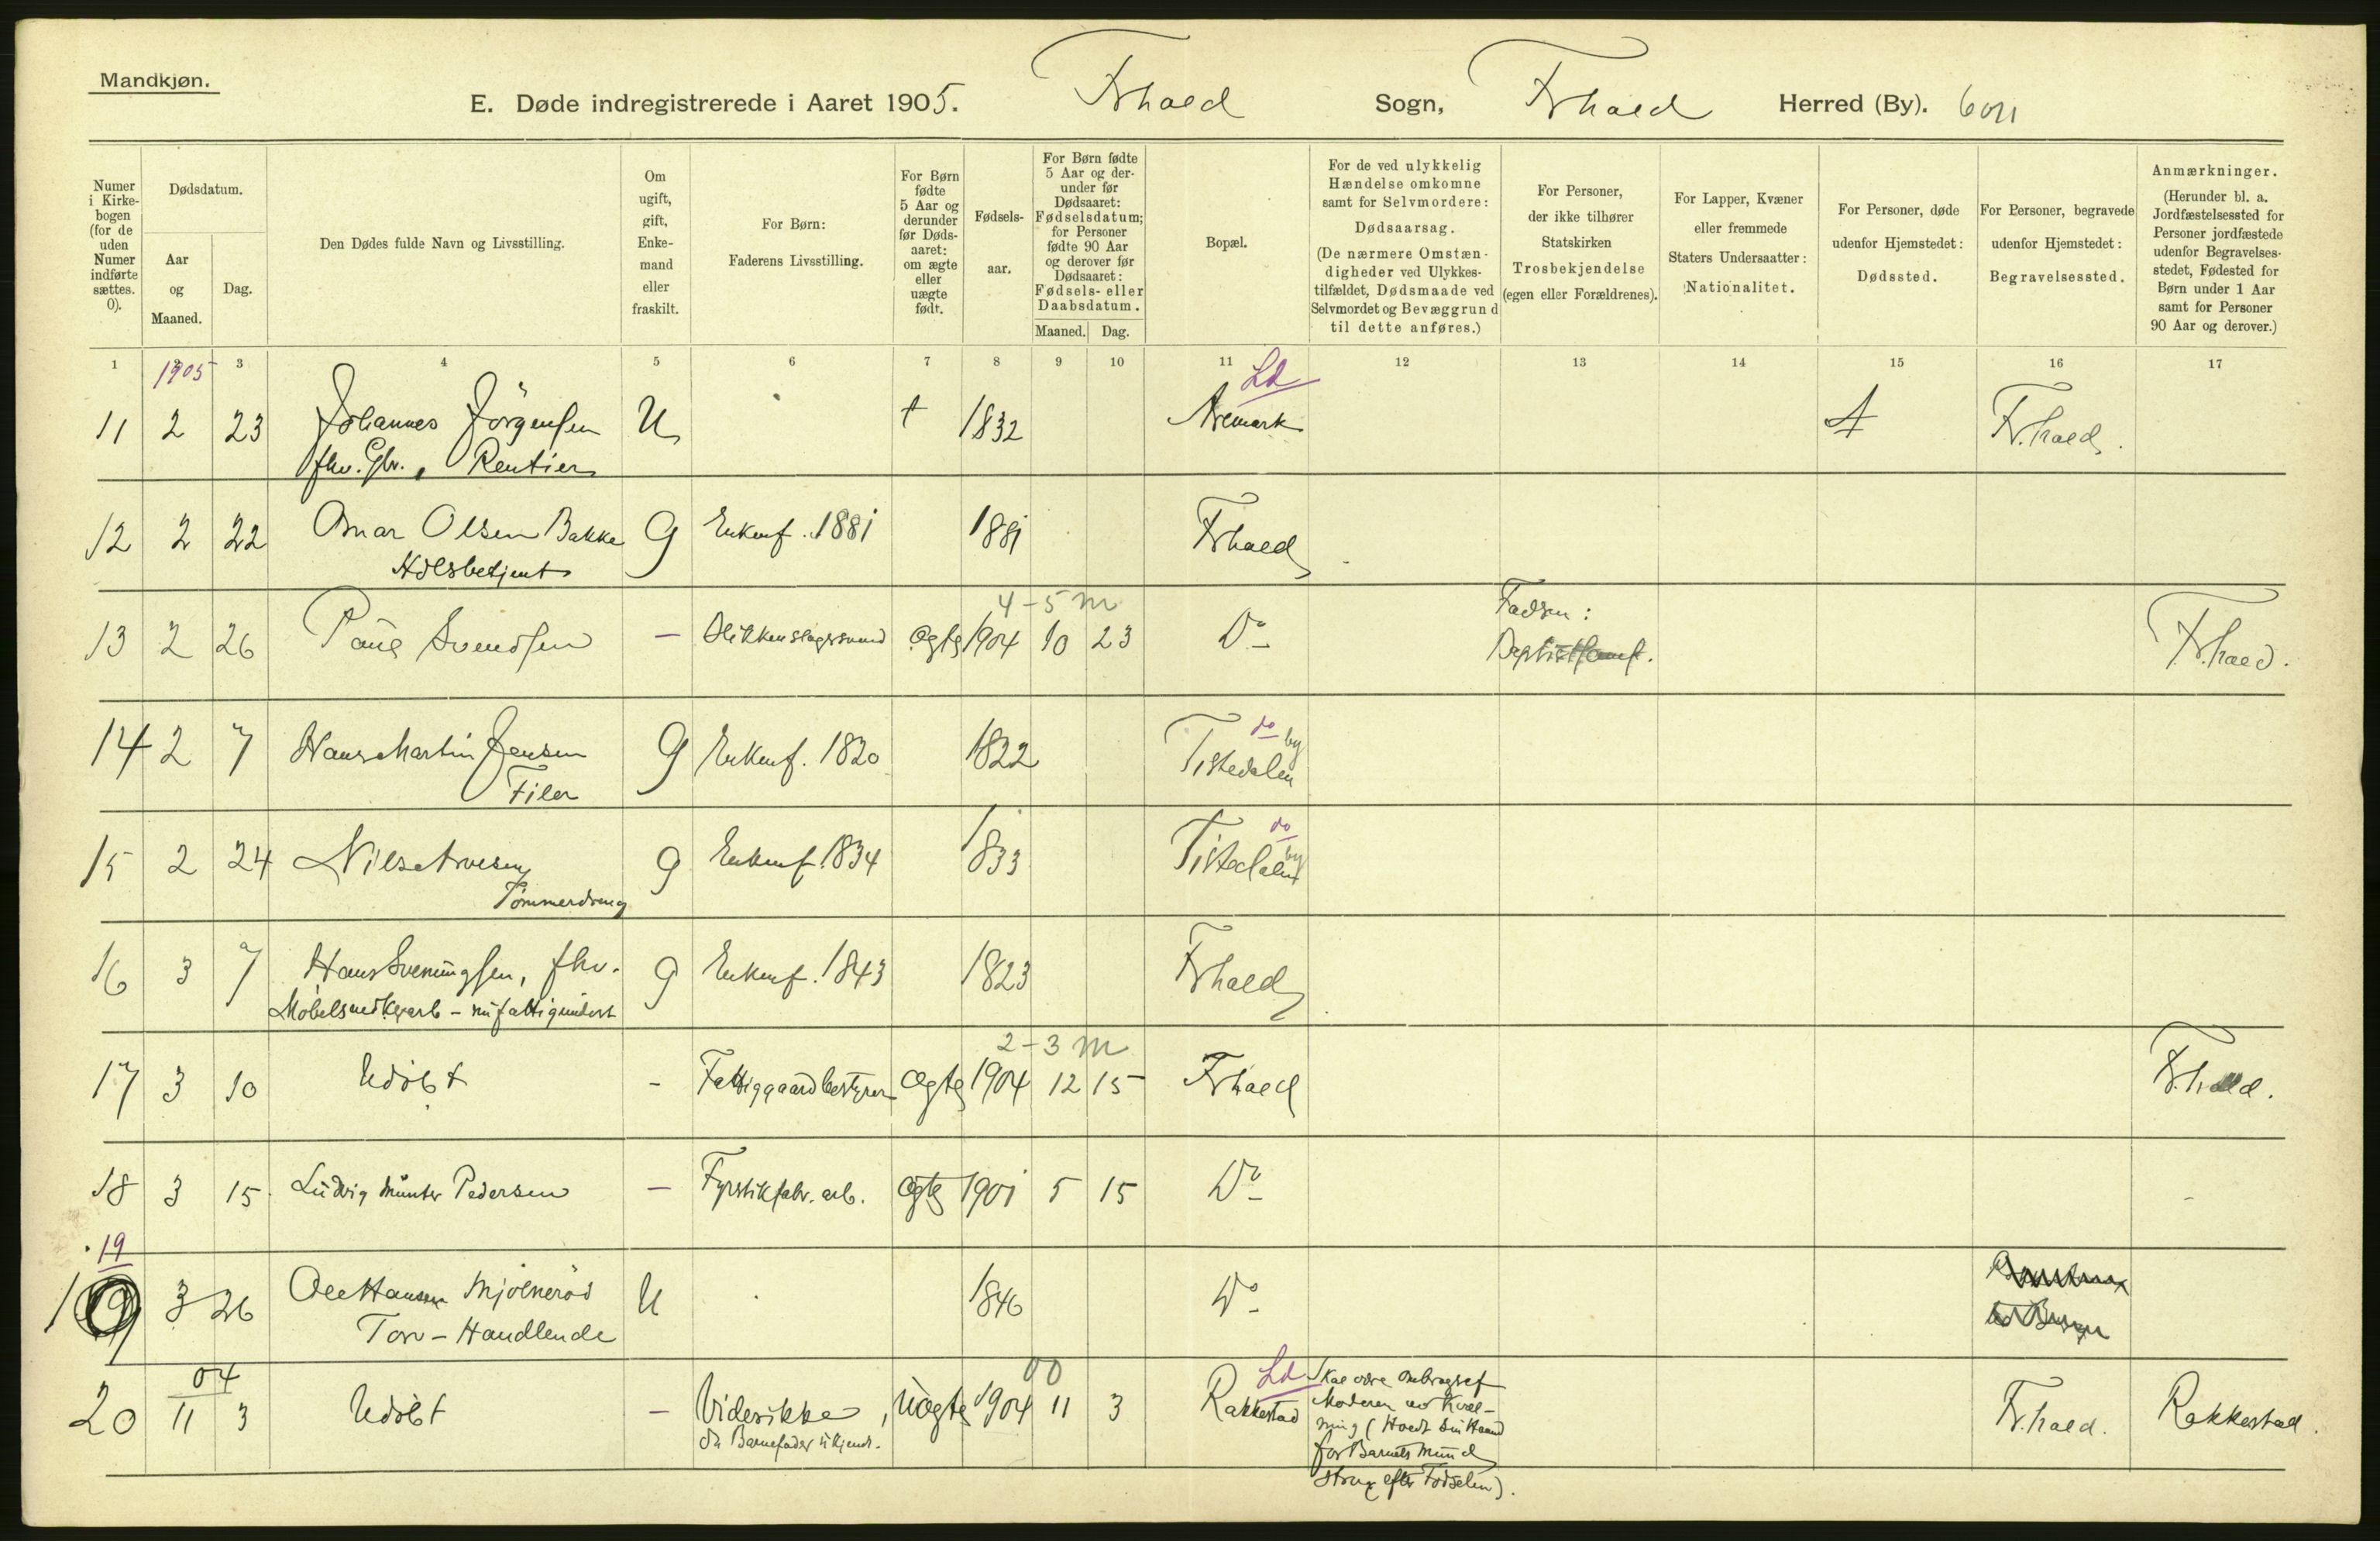 Mandkjøn.
E. Døde indregistrerede i Aaret 1905. Frhald Sogn, Frhald Herred (By).
Numer i Kirkebogen (for de uden Numer indførte sættes. 0).
Dødsdatum.
Aar og Maaned.
Dag.
Den Dødes fulde Navn og Livsstilling.
Om ugift, gift, Enkemand eller fraskilt.
For Børn: Faderens Livsstilling.
For Børn fødte 5 Aar og derunder før Dødsaaret: om ægte eller uægte født.
Fødselsaar.
For Børn fødte 5 Aar og derunder før Dødsaaret: Fødselsdatum; for Personer fødte 90 Aar og derover før Dødsaaret: Fødsels- eller Daabsdatum.
Maaned. Dag.
Bopæl.
For de ved ulykkelig Hændelse omkomne samt for Selvmordere: Dødsaarsag. (De nærmere Omstændigheder ved Ulykkestilfældet, Dødsmaade ved Selvmordet og Bevæggrund til dette anføres.)
For Personer, der ikke tilhører Statskirken Trosbekjendelse (egen eller Forældrenes).
For Lapper, Kvæner eller fremmede Staters Undersaatter: Nationalitet.
For Personer, døde udenfor Hjemstedet: Dødssted.
For Personer, begravede udenfor Hjemstedet: Begravelsessted.
Anmærkninger. (Herunder bl. a. Jordfæstelsessted for Personer jordfæstede udenfor Begravelsesstedet, Fødested for Børn under 1 Aar samt for Personer 90 Aar og derover.)
1 3 4 5 6 7 8 9 10 11 12 13 14 15 16 17
1905 Ld
11 2 23 Johannes Jörgensen U 1832 Aremark F.hald.
fhv. Gbr., Rentier
12 2 22 Omar Olsen Bakke G Enkenf. 1881 1881 Frhald
Hdlsbetjent
4-5 m
13 2 26 Paul Svendsen - Blikkenslagersvend Ægte 1904 10 23 Do Fadren: Fr.hald.
do by
14 2 7 Hans Martin Jensen G Enkenf. 1820 1822 Tistedalen
Filer
do by
15 2 24 Nils Arvesen G Enkenf. 1834 1833 Tistedalen
Tömmerdreng
16 3 7 Hans Sveningsen, fhv. G Enkenf. 1843 1823 Frhald
Möbelsnedkerarb - nu fattigunderst
2-3 m
17 3 10 Udöbt - Fattiggaardbestyrer Ægte 1904 12 15 Frhald Fr.hald.
18 3 15 Ludvig Münter Pedersen - Fyrstikfabr. arb. Ægte 1901 5 15 Do
19
19 3 26 Ole Hansen Mjölneröd U 1846 Do
Torv-Handlende
04 00 Ld
20 11 3 Udöbt - Vides ikke, Uægte 1904 11 3 Rakkestad Fr.hald. Rakkestad.
da Barnefader ukjendt.
Skal være ombragt af
Moderen ved Kvæl-
ning (Hvedt sin Haand
for Barnets Mund
strax efter Födselen).